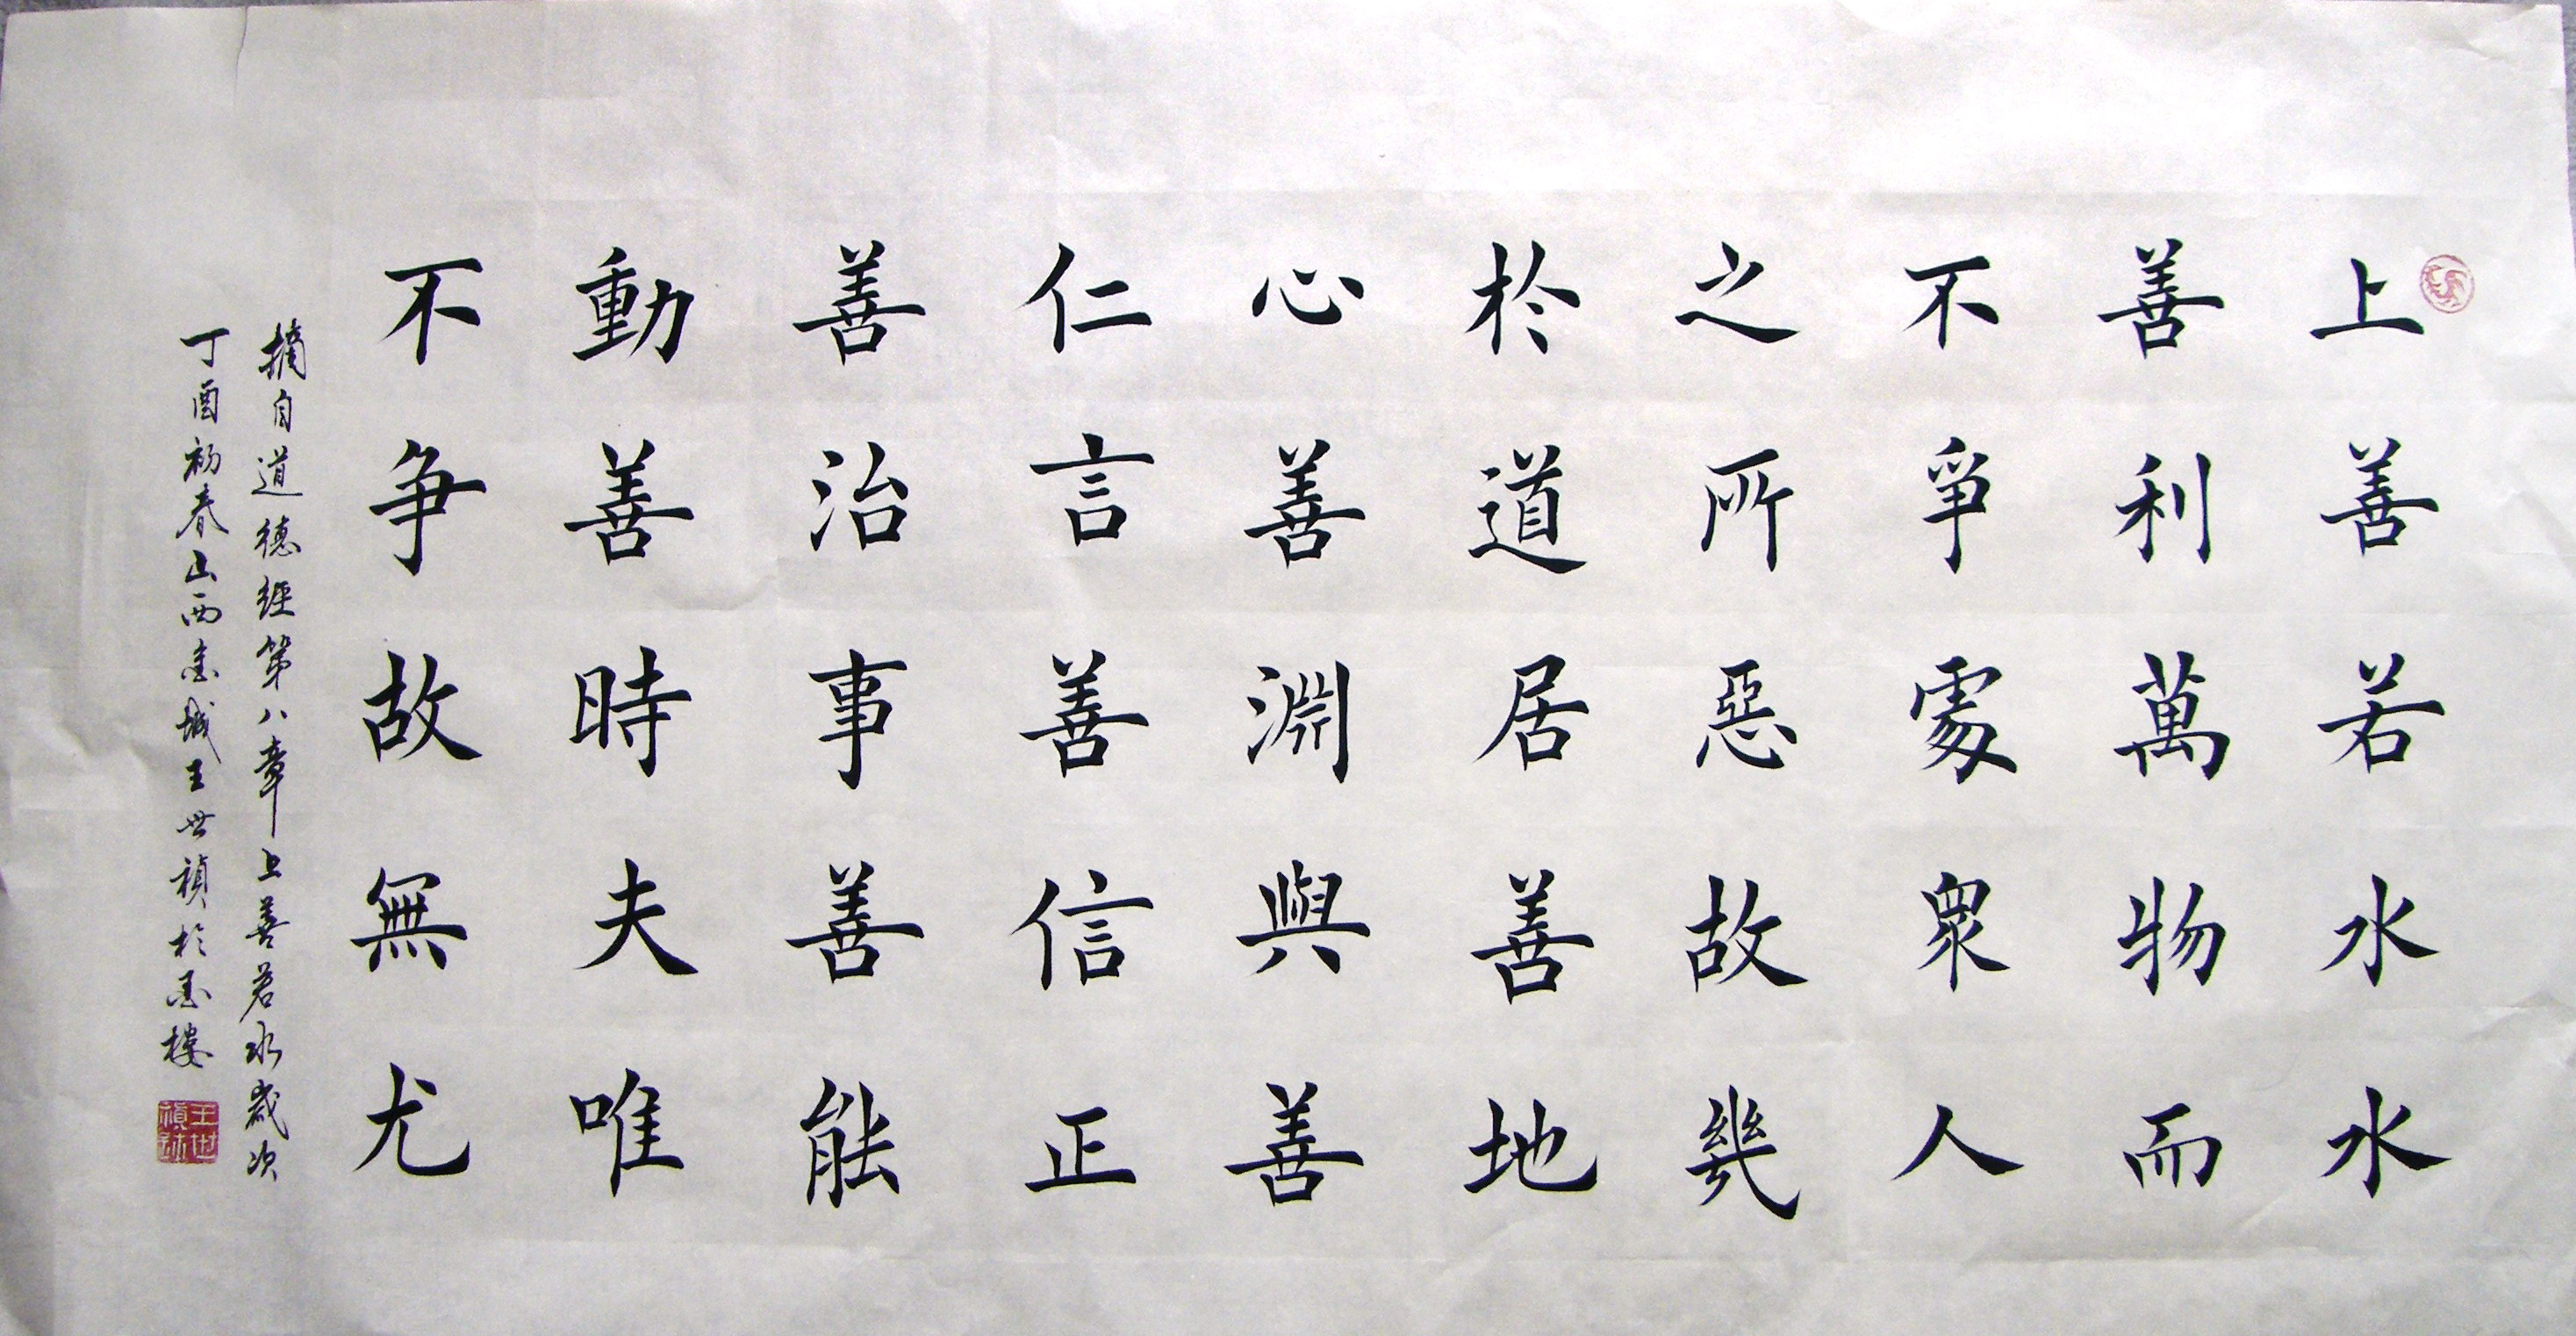 上善若水水
善利萬物而
不爭處衆人
之所惡故幾
於道居善地
心善淵與善
仁言善信正
善治事善能
動善時夫唯
不争故無尤
摘自道德經第八章上善若水歲次
丁酉初春山西古城王世禎於墨樓
王世禎